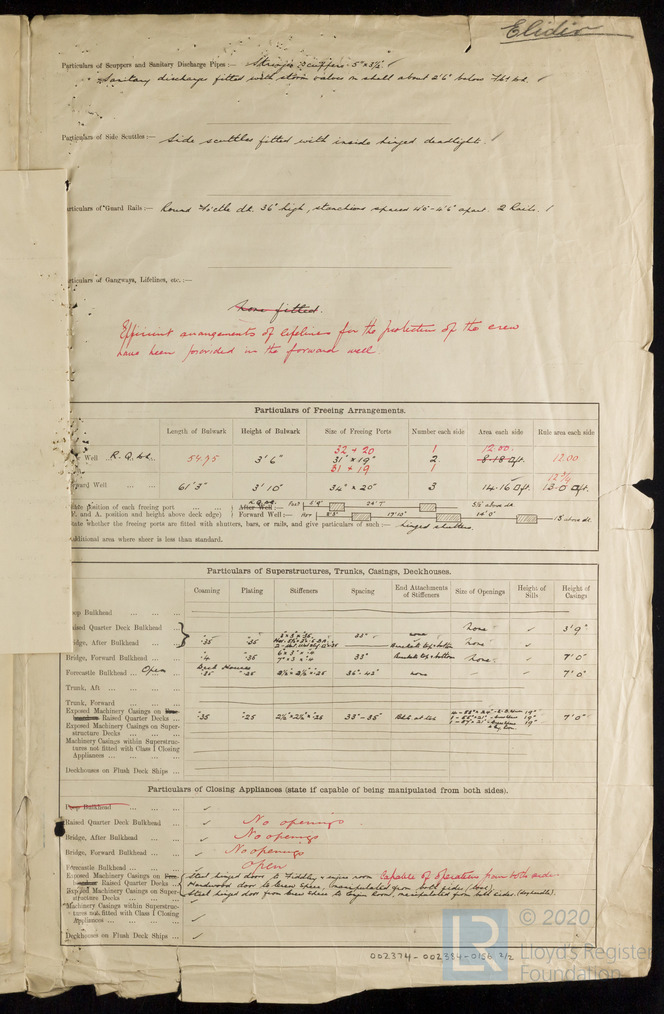 Elidir
Particulars of Scuppers and Sanitary Discharge Pipes:— Storage scuppers 5" x 3½"
Sanitary discharge fitted with storm valves on shell about 2'6" below
Particulars of Side Scuttles:— Side scuttles fitted with inside hinged deadlights.
articulars of Guard Rails:— Round F'c'tle dk. 36" high, stanchions spaced 4'0 - 4'6" apart. 2 Rails.
ticulars of Gangways, Lifelines, etc.:—
None fitted.
Efficient arrangements of lifelines for the protection of the crew
have been provided in the forward well.
Particulars of Freeing Arrangements.
Length of Bulwark Height of Bulwark Size of Freeing Ports Number each side Area each side Rule area each side
32 + 20 1 12.00.
Well R.Q.dk. 54.95 3' 6" 31" x 19" 2 8.18 12.00
31 + 19 1
ward Well 61' 3" 3' 10" 34" x 20" 3 14.16 13.0
tate position of each freeing port After Well:—
F. and A. position and height above deck edge) Forward Well:— 17'10" 14'0"
tate whether the freeing ports are fitted with shutters, bars, or rails, and give particulars of such:— hinged shutters.
dditional area where sheer is less than standard.
Particulars of Superstructures, Trunks, Casings, Deckhouses.
Coaming Plating Stiffeners Spacing End Attachments of Stiffeners Size of Openings Height of Sills Height of Casings
oop Bulkhead
aised Quarter Deck Bulkhead none 3' 9"
ridge, After Bulkhead .35 .35 33" none Brackets top & bottom none
Bridge, Forward Bulkhead .4 .35 33" Brackets top & bottom none. 7' 0"
Forecastle Bulkhead Open .35 .25 2½ x 2½ x .25 36"- 42" none 7' 0"
Trunk, Aft
Trunk, Forward
Exposed Machinery Casings on
Raised Quarter Decks .35 .25 2½ x 2½ x .25 33"- 35" 7' 0"
Exposed Machinery Casings on Super-
structure Decks
Machinery Casings within Superstruc-
tures not fitted with Class 1 Closing
Appliances
Deckhouses on Flush Deck Ships
Particulars of Closing Appliances (state if capable of being manipulated from both sides).
Poop Bulkhead
Raised Quarter Deck Bulkhead No openings
Bridge, After Bulkhead No openings
Bridge, Forward Bulkhead No openings
Forecastle Bulkhead Open
Exposed Machinery Casings on Steel hinged doors to Fiddley & engine room Capable of operation from both sides
Raised Quarter Decks Hardwood door to crew space, manipulated from both sides
Exposed Machinery Casings on Super- Steel hinged door from crew space to Engine Room, manipulated from both sides.
structure Decks
Machinery Casings within Superstruc-
tures not fitted with Class 1 Closing
Appliances
Deckhouses on Flush Deck Ships
002374-002384-0156 2/2
LR
© 2020
Lloyd's Register
Foundation